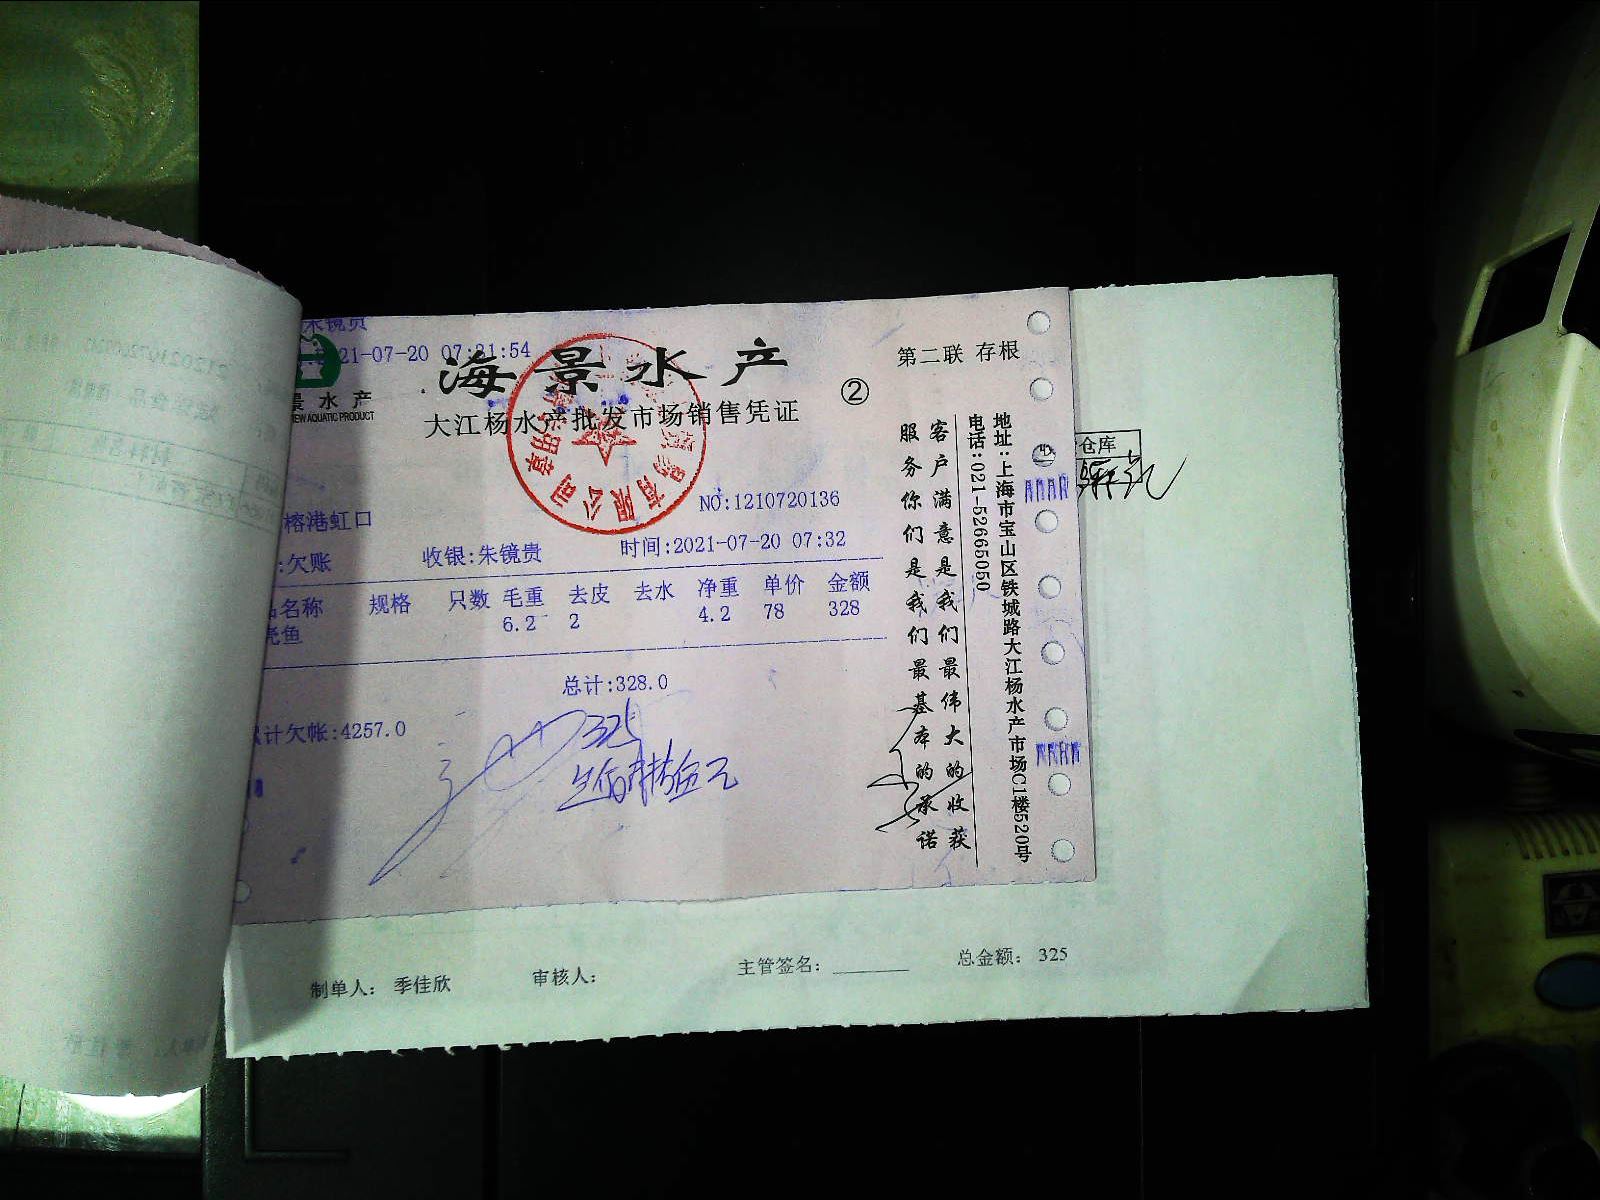 朱镜贵
21-07-20 07:31:54
海景水产
景水产
EW AQUATIC PRODUCT
大江杨水产批发市场销售凭证
②
第二联 存根
NO:1210720136
榕港虹口
:欠账 收银:朱镜贵 时间:2021-07-20 07:32
品名称 规格 只数 毛重 去皮 去水 净重 单价 金额
壳鱼 6.2 2 4.2 78 328
总计:328.0
累计欠帐:4257.0
325
有限公司
专用章
客户满意是我们最伟大的收获
服务你们是我们最基本的承诺
地址:上海市宝山区铁城路大江杨水产市场C1楼520号
电话:021-52665050
收
仓库
制单人: 季佳欣 审核人: 主管签名: 总金额: 325